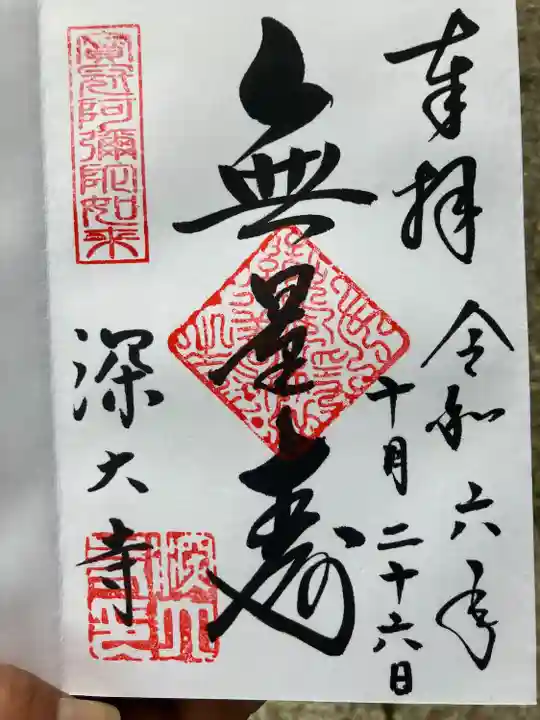 奉拝
令和六年
十月二十六日
無量寿
寶冠阿彌陀如来
深大寺